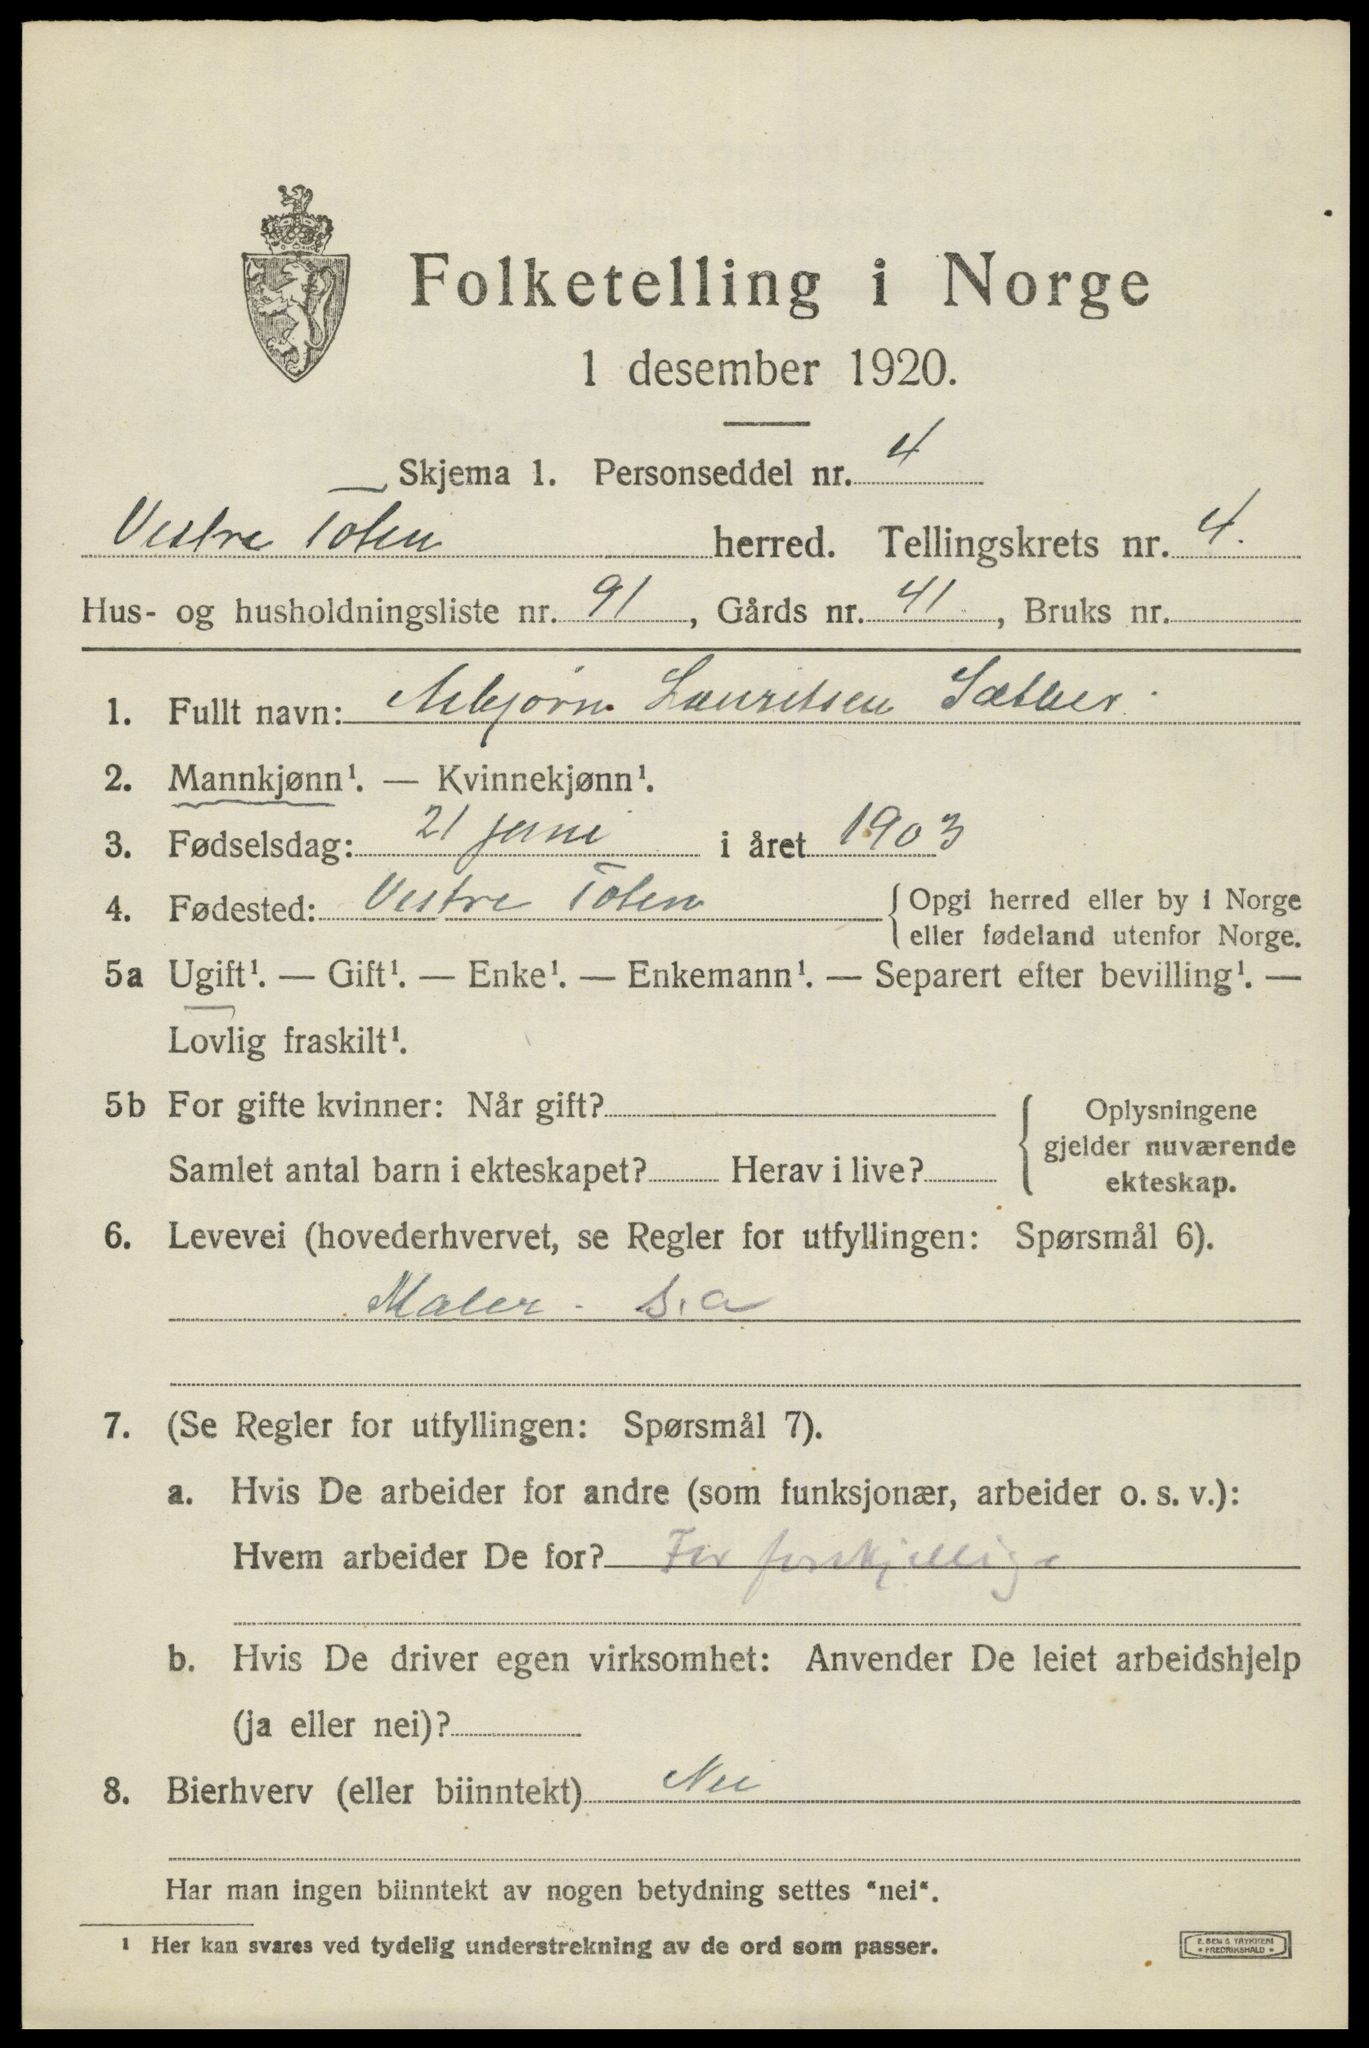 Folketelling i Norge
1 desember 1920.
Skjema 1. Personseddel nr. 4
Vestre Toten herred. Tellingskrets nr. 4.
Hus- og husholdningsliste nr. 91, Gårds nr. 41, Bruks nr.
1. Fullt navn: Asbjørn Lauritsen Sæther.
2. Mannkjønn¹. — Kvinnekjønn¹.
3. Fødselsdag: 21 juni i året 1903
4. Fødested: Vestre Toten { Opgi herred eller by i Norge
eller fødeland utenfor Norge.
5a Ugift¹. — Gift¹. — Enke¹. — Enkemann¹. — Separert efter bevilling¹. —
Lovlig fraskilt¹.
5b For gifte kvinner: Når gift?
Samlet antal barn i ekteskapet? Herav i live?
{ Oplysningene
gjelder nuværende
ekteskap.
6. Levevei (hovederhvervet, se Regler for utfyllingen: Spørsmål 6).
Maler. s.a
7. (Se Regler for utfyllingen: Spørsmål 7).
a. Hvis De arbeider for andre (som funksjonær, arbeider o. s. v.):
Hvem arbeider De for? For forskjellige
b. Hvis De driver egen virksomhet: Anvender De leiet arbeidshjelp
(ja eller nei)?
8. Bierhverv (eller biinntekt) Nei
Har man ingen biinntekt av nogen betydning settes "nei".
¹ Her kan svares ved tydelig understrekning av de ord som passer.
FREDRIKSHALD